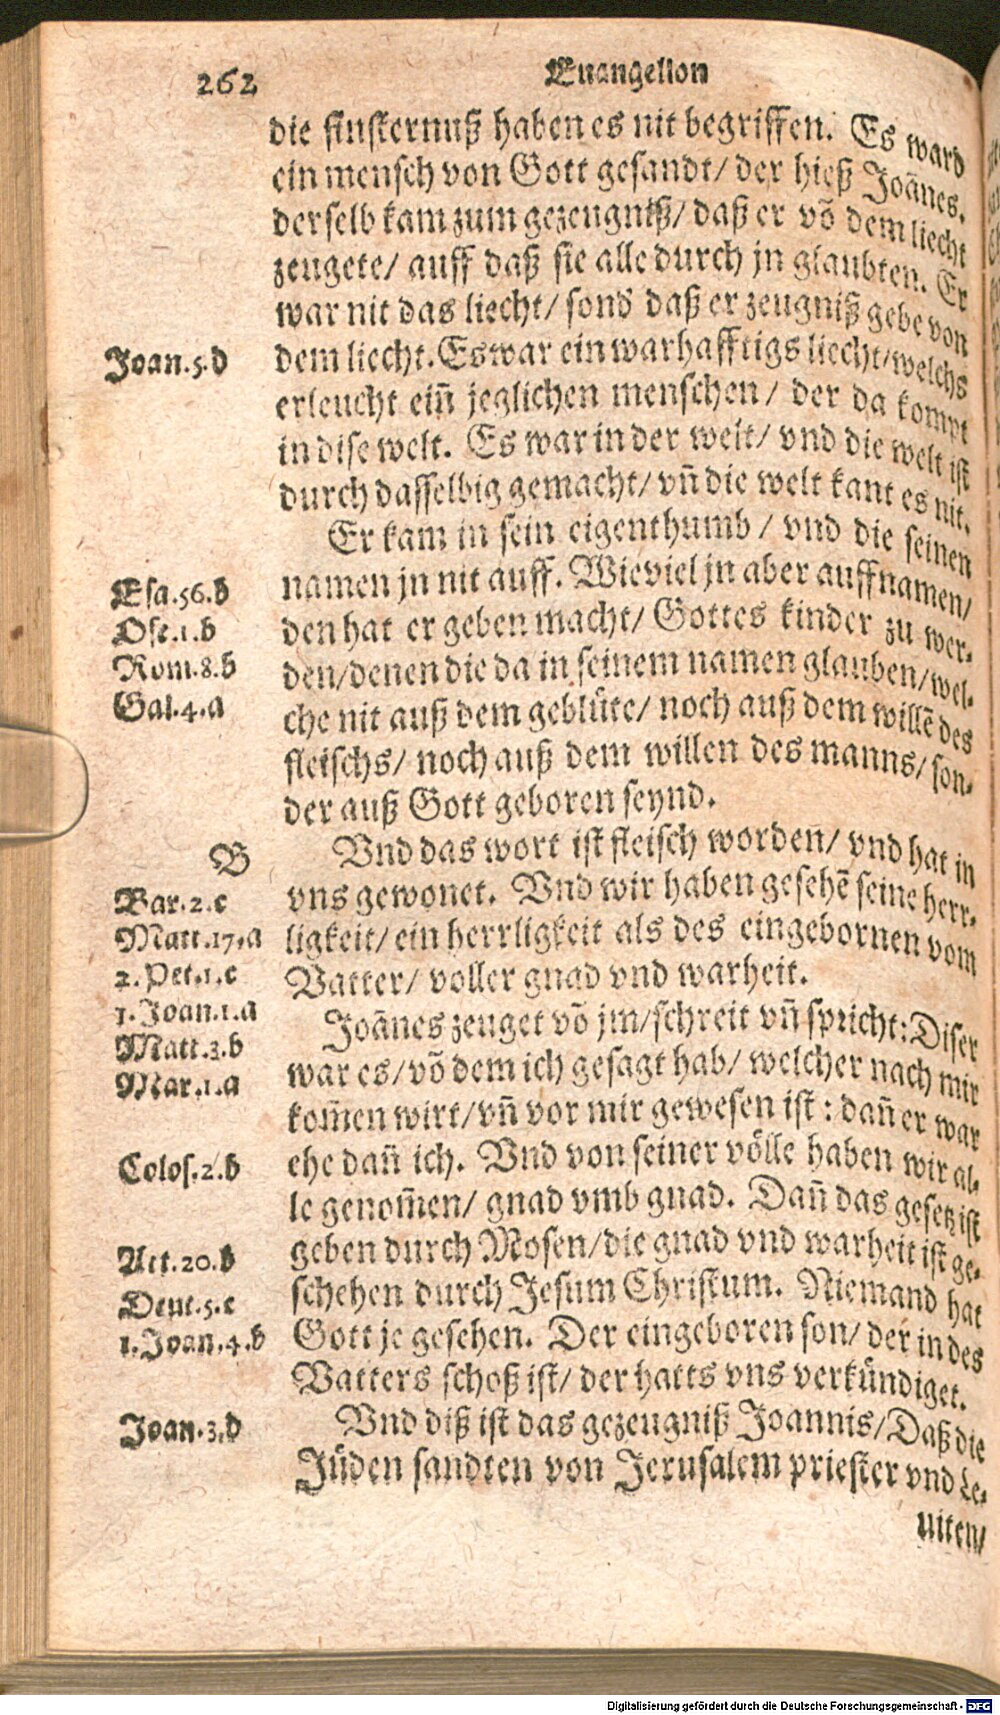 262 Euangelion
die finsternuß haben es nit begriffen. Es ward
ein mensch von Gott gesandt/ der hieß Joānes.
derselb kam zum gezeugniß/ daß er vō dem liecht
zeugete/ auff daß sie alle durch jn glaubten. Er
war nit das liecht/ sond daß er zeugniß gebe von
Joan.5.d
dem liecht. Es war ein warhafftigs liecht/ welchs
erleucht ein̄ jeglichen menschen/ der da kompt
in dise welt. Es war in der welt/ vnd die welt ist
durch dasselbig gemacht/ vn̄ die welt kant es nit.
Er kam in sein eigenthumb/ vnd die seinen
Esa.56.b
namen jn nit auff. Wieviel jn aber auffnamen/
Ose.1.b
den hat er geben macht/ Gottes kinder zu wer-
Rom.8.b
den/ denen die da in seinem namen glauben/ wel-
Gal.4.a
che nit auß dem geblüte/ noch auß dem willē des
fleischs/ noch auß dem willen des manns/ son-
der auß Gott geboren seynd.
B
Vnd das wort ist fleisch worden/ vnd hat in
Bar.2.c
vns gewonet. Vnd wir haben gesehē seine herr-
Matt.17.a
ligkeit/ ein herrligkeit als des eingebornen vom
2.Pet.1.c
Vatter/ voller gnad vnd warheit.
1.Joan.1.a
Joānes zeuget vō jm/ schreit vn̄ spricht: Diser
Matt.3.b
war es/ vō dem ich gesagt hab/ welcher nach mir
Mar.1.a
kom̄en wirt/ vn̄ vor mir gewesen ist: dan̄ er war
Colos.2.b
ehe dan̄ ich. Vnd von seiner völle haben wir al-
le genom̄en/ gnad vmb gnad. Dan̄ das gesetz ist
Act.20.b
geben durch Mosen/ die gnad vnd warheit ist ge-
Deut.5.c
schehen durch Jesum Christum. Niemand hat
1.Joan.4.b
Gott je gesehen. Der eingeboren son/ der in des
Vatters schoß ist/ der hatts vns verkündiget.
Joan.3.d
Vnd diß ist das gezeugniß Joannis/ Daß die
Jüden sandten von Jerusalem priester vnd Le-
uiten/
Digitalisierung gefördert durch die Deutsche Forschungsgemeinschaft - DFG